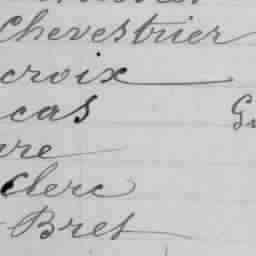 Chevestrier
croix
cas
re
Clerc
Bret